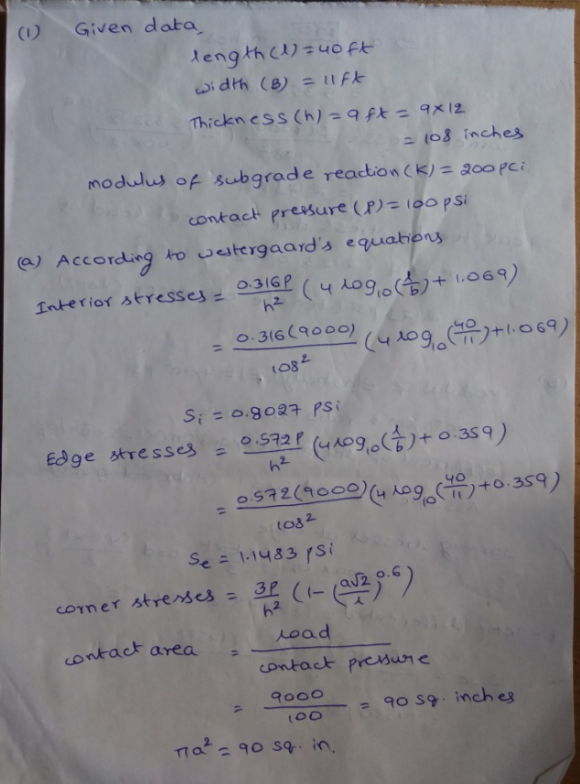 (1) Given data,
length(l) = 40 ft
width (B) = 11 ft
Thickness (h) = 9 ft = 9×12
= 108 inches
modulus of subgrade reaction (K) = 200 pci
contact pressure (P) = 100 psi
(a) According to westergaard's equations
Interior stresses = 0.316P/h² (4 log₁₀(l/b) + 1.069)
= 0.316(9000)/108² (4 log₁₀(40/11) + 1.069)
Si = 0.8027 psi
Edge stresses = 0.572P/h² (4 log₁₀(l/b) + 0.359)
= 0.572(9000)/108² (4 log₁₀(40/11) + 0.359)
Se = 1.1483 psi
corner stresses = 3P/h² (1 - (a√2/l)^0.6)
contact area = load/contact pressure
= 9000/100 = 90 sq. inches
πa² = 90 sq. in.